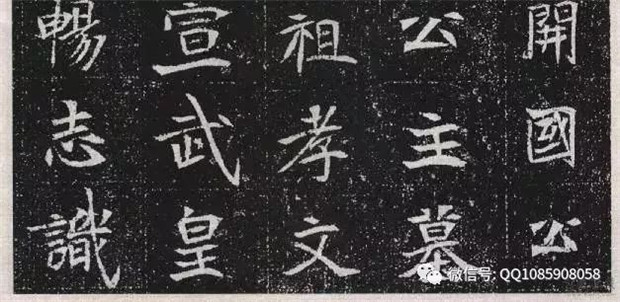 開國公
公主墓
祖孝文
宣武皇
暢志識
微信号: QQ1085908058